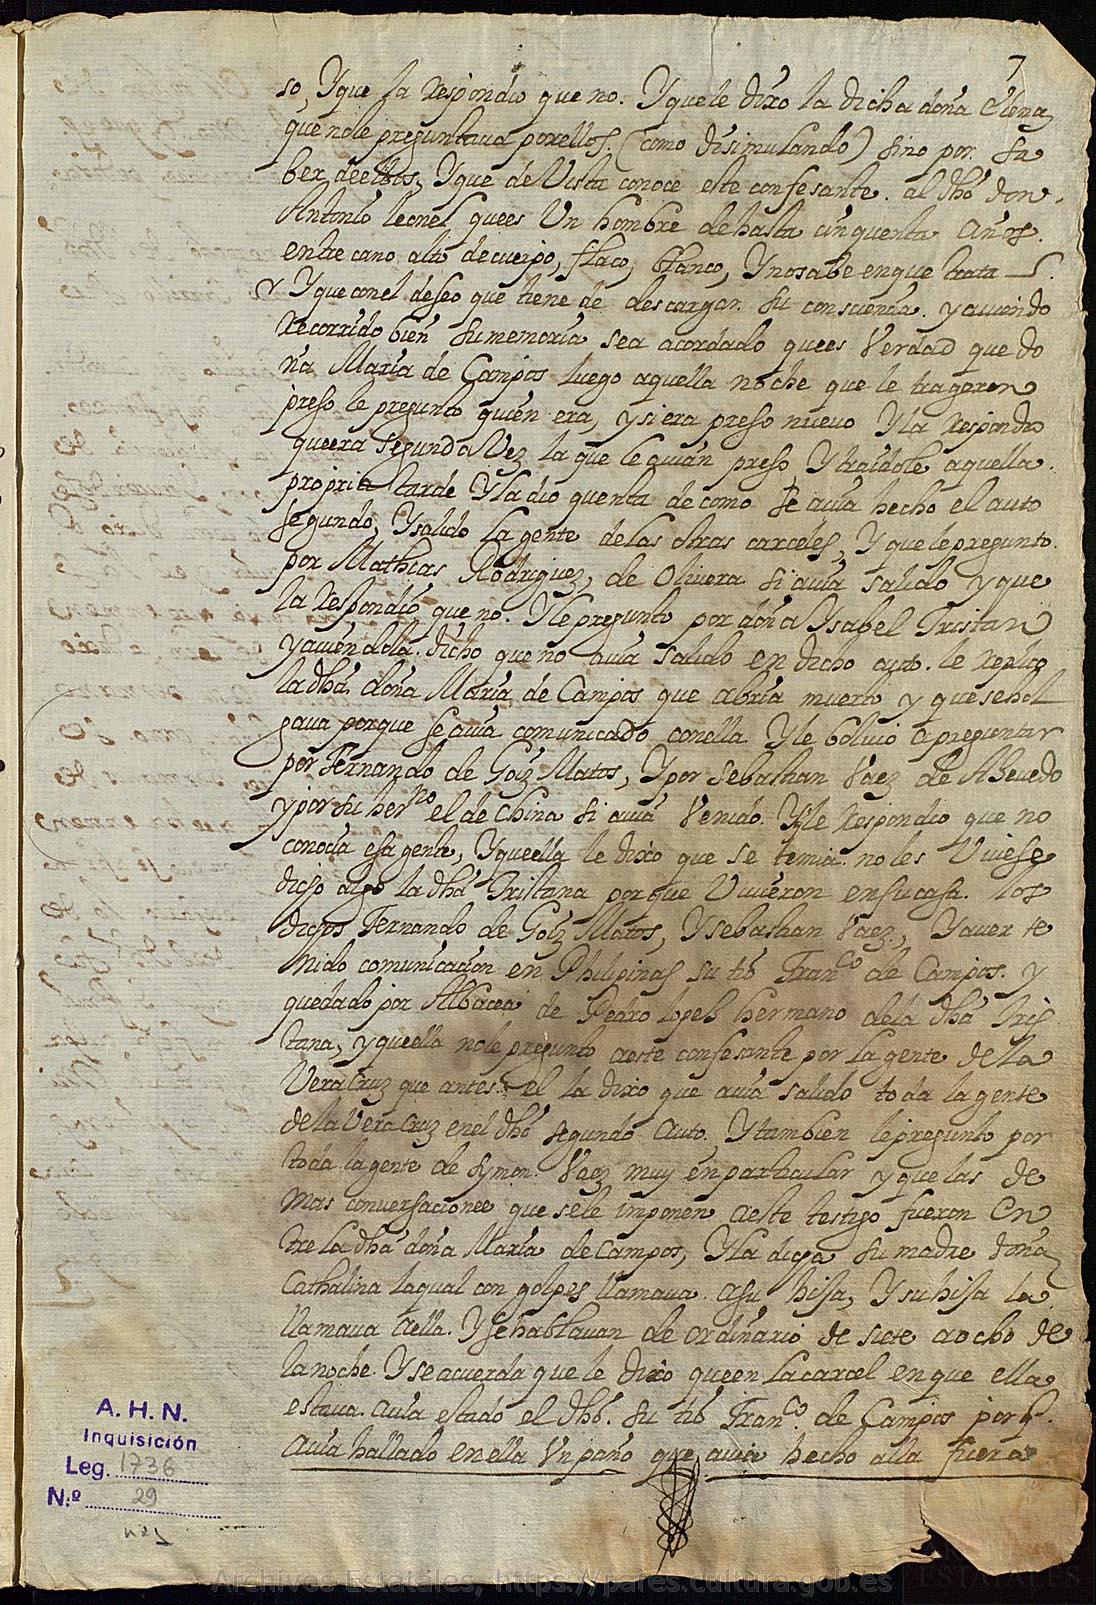 7
so, Y que la Respondio que no. Y que le dixo la dicha doña Elena,
que no le preguntaua por ellos. (como disimulando) sino por sa
ber de ellos, Y que de Vista conoce este confesante. al dho don
Antonio leonel que es Un hombre de hasta cinquenta Años.
entre cano alto de cuerpo, flaco, blanco, Y no sabe en que trata
Y que con el deseo que tiene de descargar su consciencia. y auiendo
Recorrido bien su memoria se a acordado que es Verdad que do
ña Maria de Campos luego aquella noche que le trageron
preso le pregunto quien era, y si era preso nueuo Y la Respondio
que era segunda Vez la que le auian preso Y traidole aquella
propria tarde Y la dio quenta de como se auia hecho el auto
segundo, Y salido la gente de las otras carceles, Y que le pregunto
por Mathias Rodriguez, de Olivera si auia salido y que
la Respondio que no. Y le pregunto por doña Ysabel Tristan
y auiendola dicho que no auia salido en dicho auto. le Replico
la dha doña Maria de Campos que abria muerto y que se hol
gaua porque se auia comunicado con ella Y le boluio a preguntar
por Fernando de Goiz Matos, Y por Sebastian Vaez de Azeuedo
y por su herno el de china si auia Venido. Y le Respondio que no
conocia esa gente, Y que ella le dixo que se temia no les Uuiese
dicho algo la dha Tristana porque Uiuieron en su casa. los
dichos Fernando de Goiz Matos, Y sebastian Vaez, Y auer te
nido comunicacion en Philipinas su tio Franco de Campos. y
quedado por Albacea de Pedro lopes hermano de la dha Tris
tana, y que ella no le pregunto a este confesante por la gente de la
Vera Cruz que antes el la dixo que auia salido toda la gente
de la Vera Cruz en el dho segundo Auto. Y tambien le pregunto por
toda la gente de Symon Vaez muy en particular y que las de
mas conuersaciones que se le imponen a este testigo fueron En
tre la dha doña Maria de Campos, Y la dicha su madre doña
Cathalina la qual con golpes llamaua a su hija, Y su hija la
llamaua a ella. Y se hablauan de ordinario de siete a ocho de
la noche. Y se acuerda que le dixo que en la carcel en que ella
estaua. auia estado el dho. su tio Franco de Campos porq
auia hallado en ella Un paño que auia hecho alla fuera
A. H. N.
Inquisición
Leg. 1736
N.º 29
Archivos Estatales, https://pares.cultura.gob.es
ESTATALES